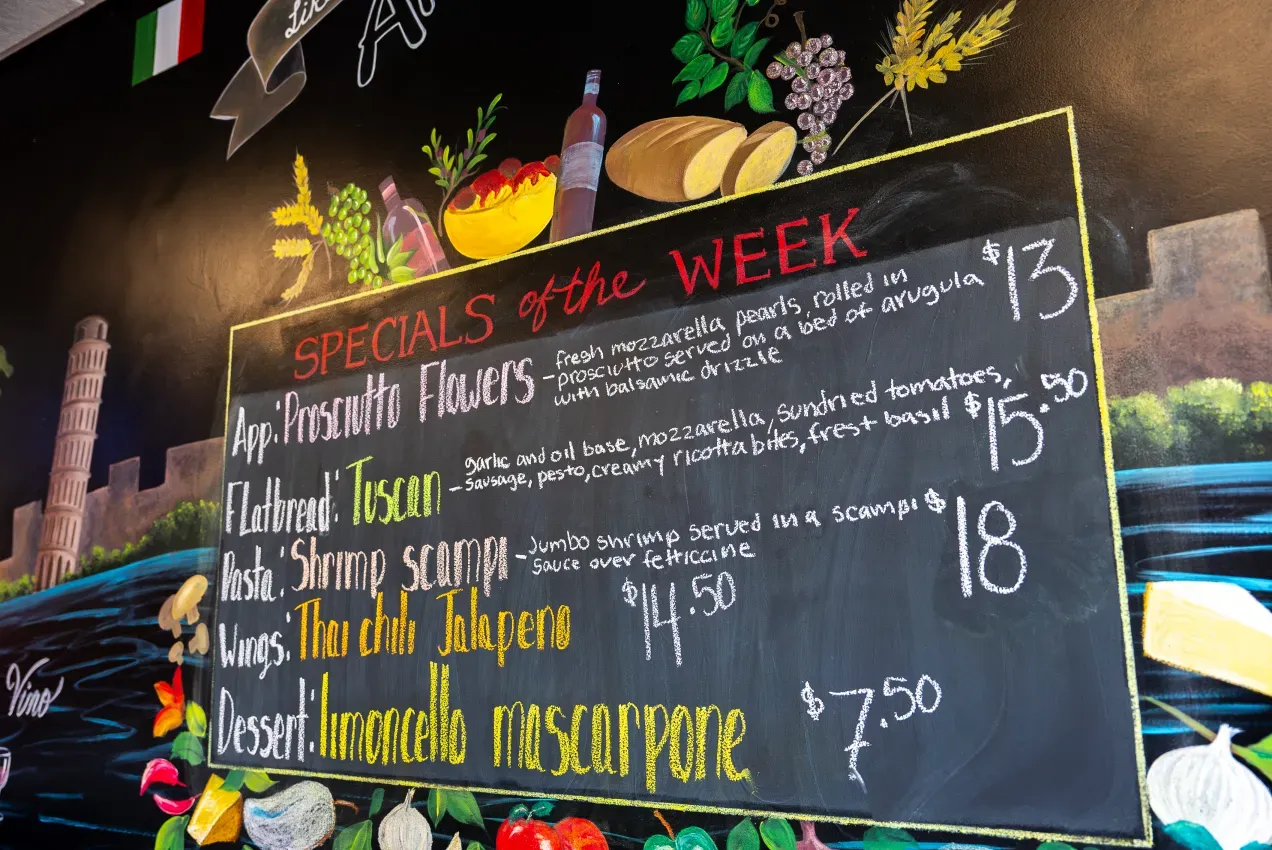 Lik
A
SPECIALS of the WEEK
App: Prosciutto Flowers - fresh mozzarella pearls, rolled in $13
- prosciutto served on a bed of arugula
with balsamic drizzle
Flatbread: Tuscan - garlic and oil base, mozzarella, sundried tomatoes, $15.50
sausage, pesto, creamy ricotta bites, frest basil
Pasta: Shrimp scampi - Jumbo shrimp served in a scampi $18
sauce over fetticcine
Wings: Thai chili Jalapeno $14.50
Dessert: limoncello mascarpone $7.50
Vino